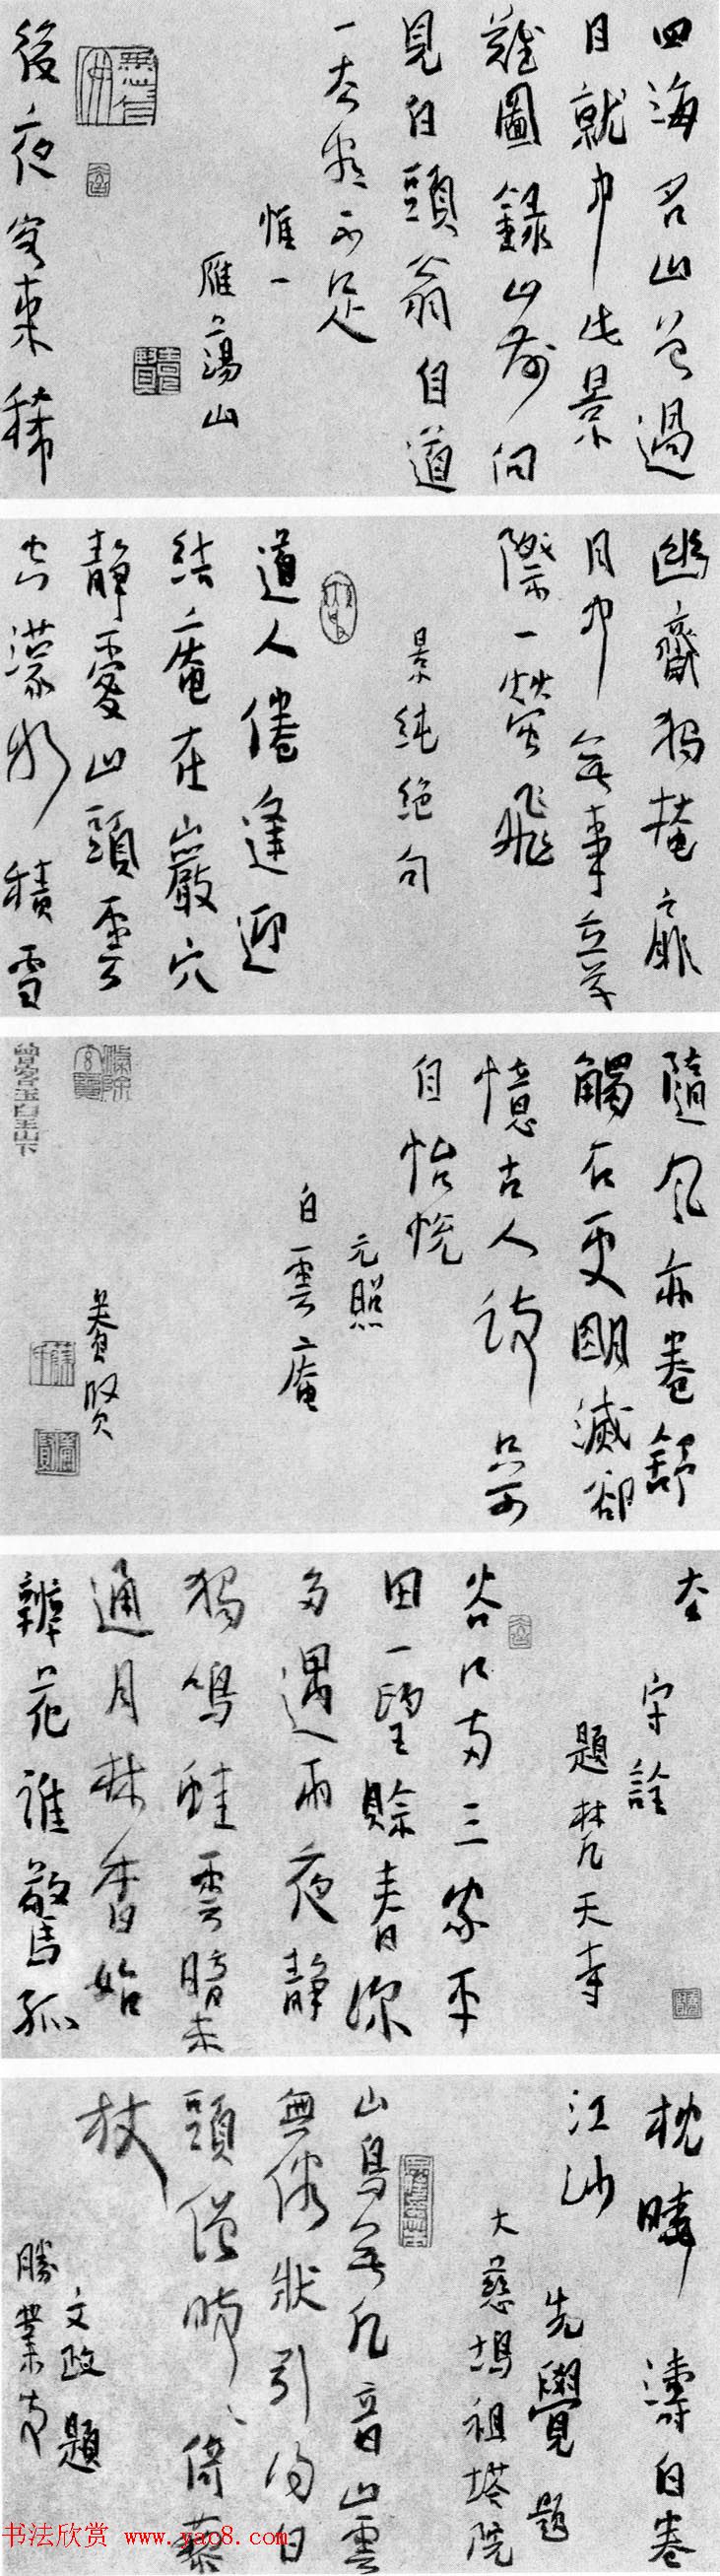 四海名山曾過
目就中此景
難圖錄山前向
見白頭翁自道
一
足
惟一
雁蕩山
後夜客來稀
幽齋獨掩扉
月中無事立草
際一螢飛
景純絕句
道人倦逢迎
結庵在巖穴
靜愛山頭雲
積雪
隨風亦卷舒
觸石更明滅卻
憶古人詩只可
自怡悅
元照
白雲庵
養賢
曾客玉白玉山下
守詮
題梵天寺
谷口兩三家平
田一望賒春深
多遇雨夜靜
獨鳴蛙雲暗未
通月林香始
辨花誰驚孤
枕曉濤白卷
江沙
先覺題
大慈塢祖塔院
山鳥無凡音山雲
無俗狀引得白
頭僧時時倚藜
杖
文政題
勝業寺
书法欣赏 www.yac8.com